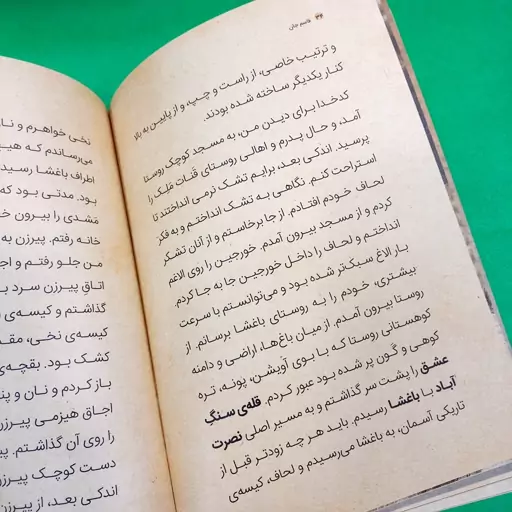 ۳۴ قاسم جان
و ترتیب خاصی، از راست و چپ، و از پایین به بالا
کنار یکدیگر ساخته شده بودند.
کدخدا برای دیدن من، به مسجد کوچک روستا
آمد، و حال پدرم و اهالی روستای قنات ملک را
پرسید. اندکی بعد، برایم تشک نرمی انداختند تا
استراحت کنم. نگاهی به تشک انداختم و به فکر
لحاف خودم افتادم. از جا برخاستم و از آنان تشکر
کردم و از مسجد بیرون آمدم. خورجین را روی الاغم
انداختم و لحاف را داخل خورجین جا به جا کردم.
بار الاغ سبک‌تر شده بود و می‌توانستم با سرعت
بیشتری، خودم را به روستای باغشا برسانم. از
روستا بیرون آمدم. از میان باغ‌ها، اراضی و دامنه
کوهستانی روستا که با بوی آویشن، پونه، تره
کوهی و گون پر شده بود عبور کردم. قله‌ی سنگ
عشق را پشت سر گذاشتم و به مسیر اصلی نصرت
آباد با باغشا رسیدم. باید هر چه زودتر قبل از
تاریکی آسمان، به باغشا می‌رسیدم و لحاف، کیسه‌ی
نخی خواهرم و نان
می‌رساندم که هیـ
اطراف باغشا رسید
بود. مدتی بود که
مَشدی را بیرون خـ
خانه رفتم. پیرزن به
من جلو رفتم و اجا
اتاق پیرزن سرد با
گذاشتم و کیسه‌ی
کیسه‌ی نخی، مقد
کشک بود. بقچه‌ی
باز کردم و نان و پنـ
اجاق هیزمی پیرز
را روی آن گذاشتم. پیر
دست کوچک پیرزن
اندکی بعد، از پیرز